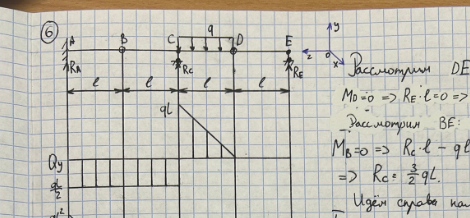 6
A B C q D E
R_A R_C R_E
l l l l
y
z 0 x
qL
Qy
qL/2
Рассмотрим DE
M_D=0 => R_E·l=0 =>
Рассмотрим BE:
M_B=0 => R_C·l - ql
=> R_C= 3/2 qL.
Идём справа